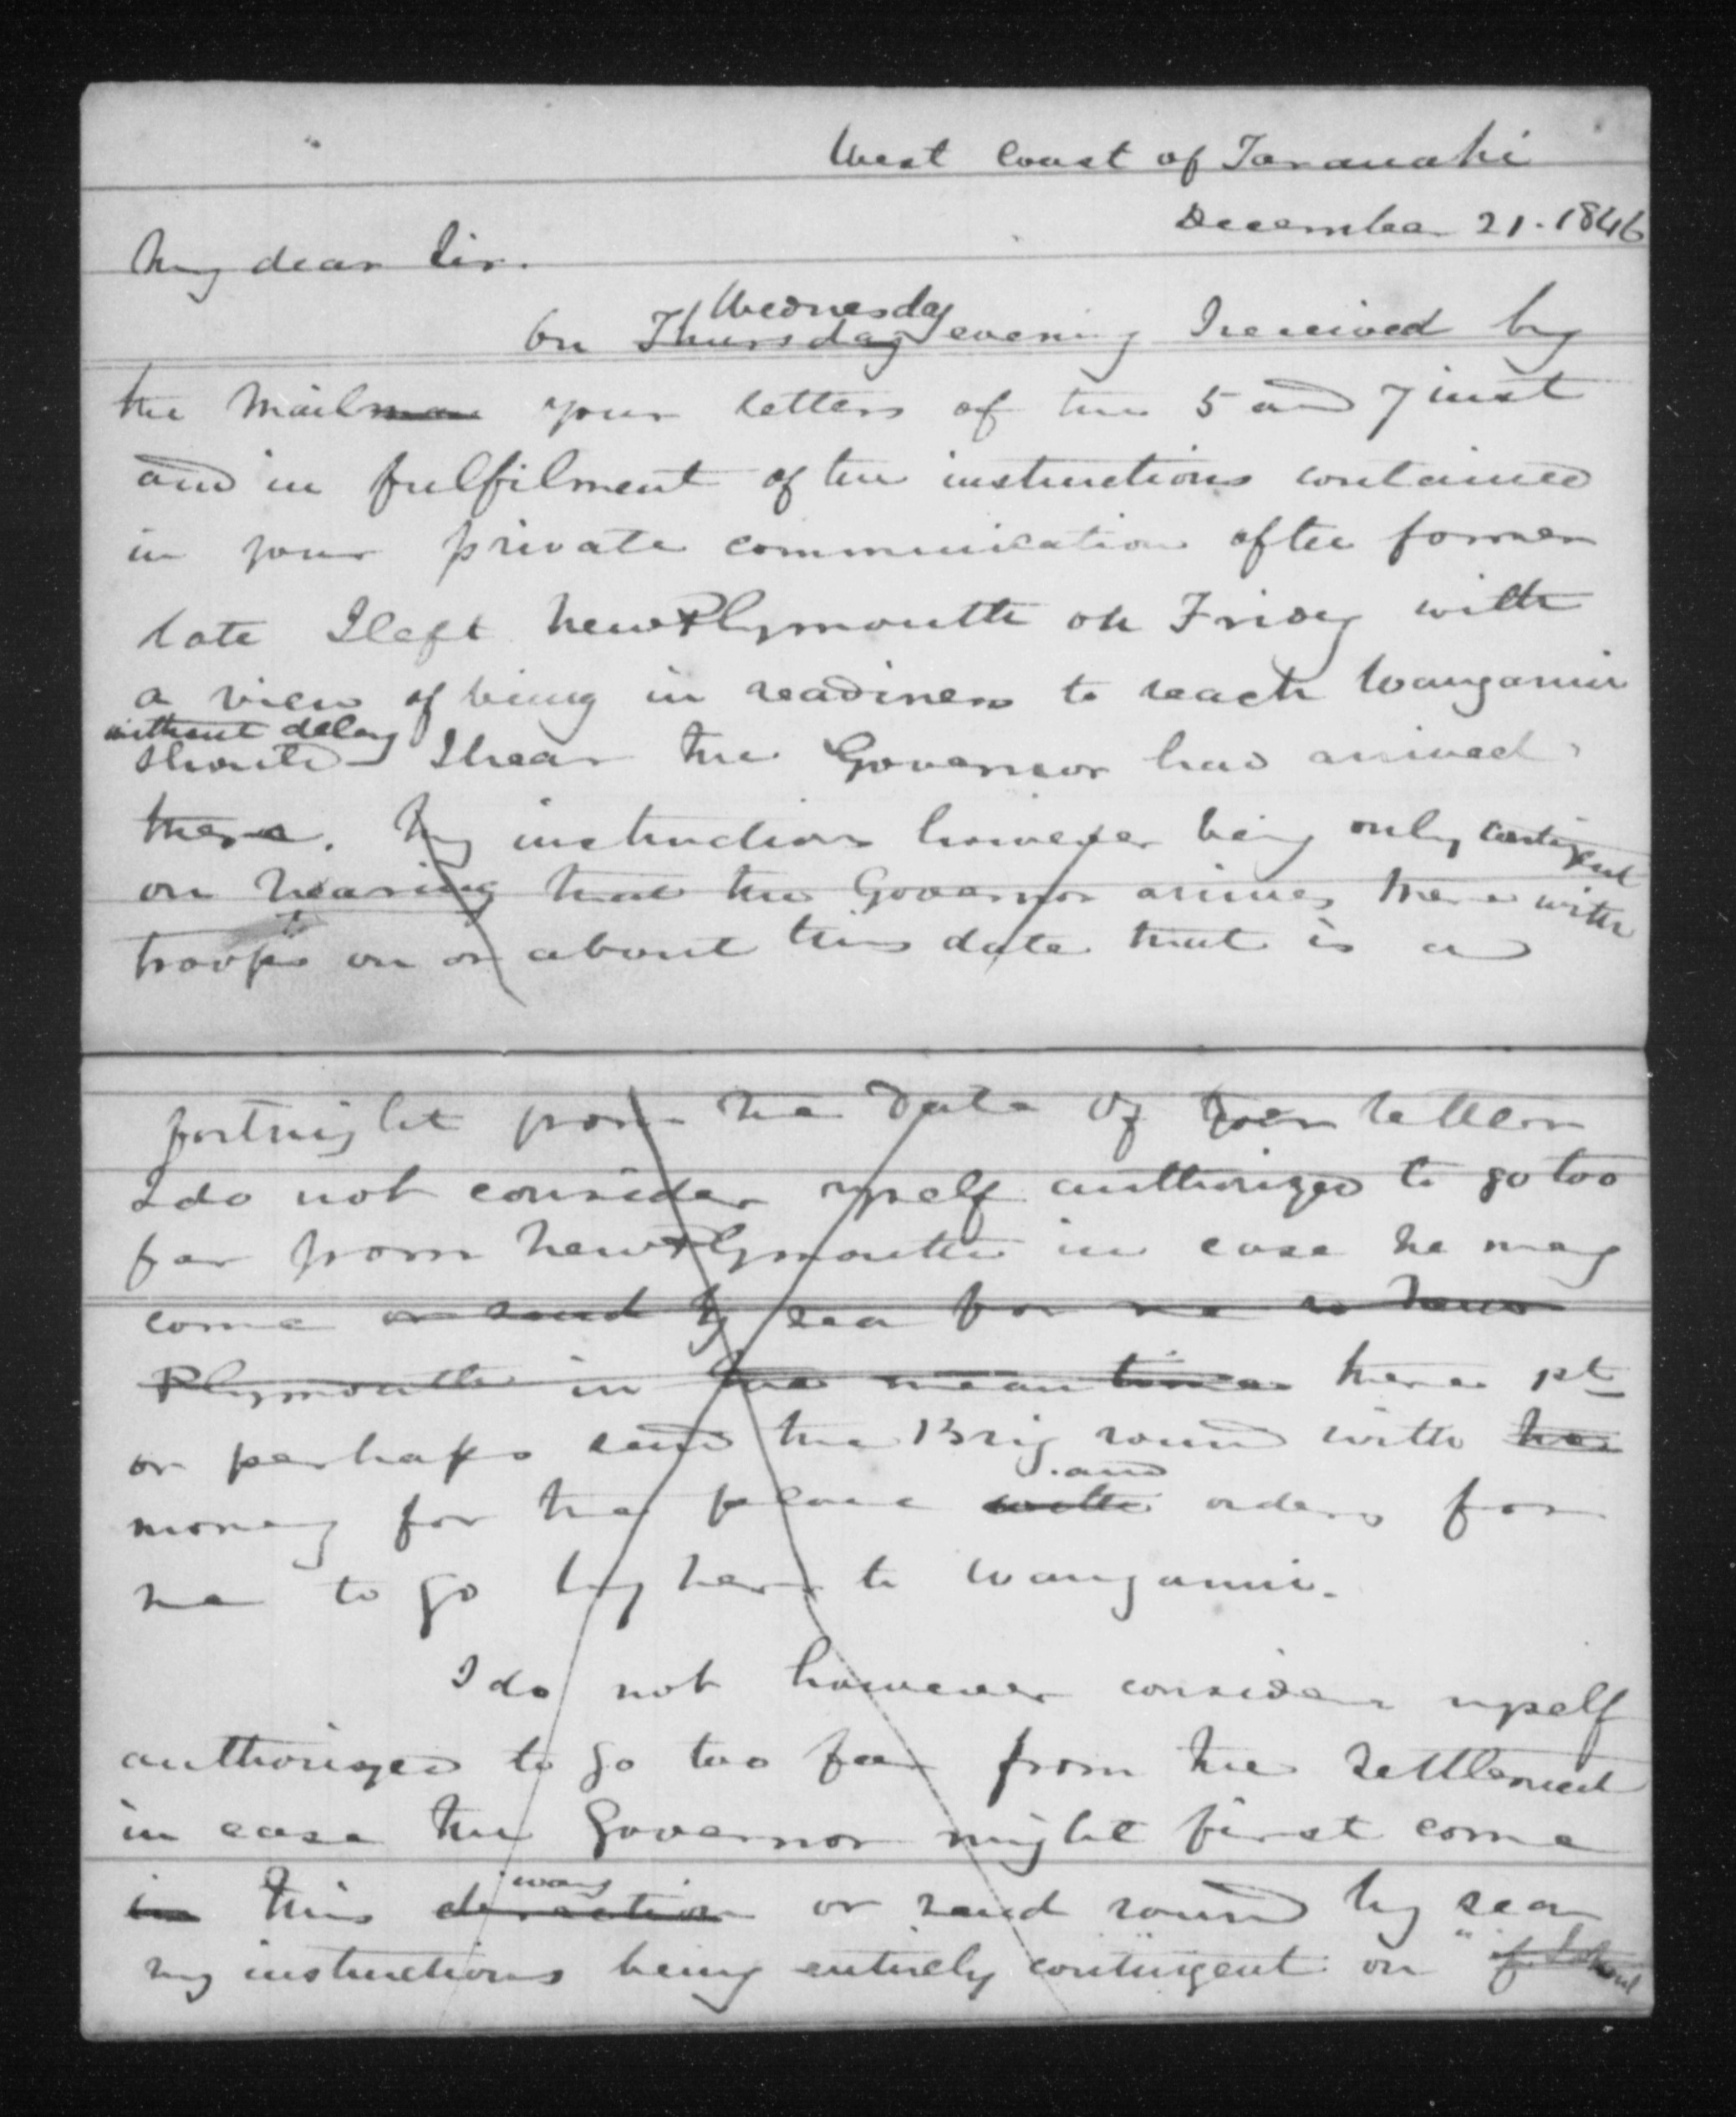 West Coast of Taranaki
December 21. 1846
My dear Sir.
Wednesday
On Thursday evening I received by
the Mailman your letters of the 5 and 7 inst
and in fulfilment of the instructions contained
in your private communication of the former
date I left New Plymouth on Friday with
a view of being in readiness to reach Wanganui
without delay
should I hear the Governor had arrived
there. My instructions however being only contingent
on hearing that the Governor arrives there with
troops on or about this date that is a
fortnight from the date of your letter
I do not consider myself authorized to go too
far from New Plymouth in case he may
come or send by sea for me to New
Plymouth in the mean time here 1st
or perhaps send the Brig round with her
money for the place with orders for
and
me to go by her to Wanganui.
I do not however consider myself
authorized to go too far from the settlement
in case the Governor might first come
way
in this direction or send round by sea
my instructions being entirely contingent on "if I should